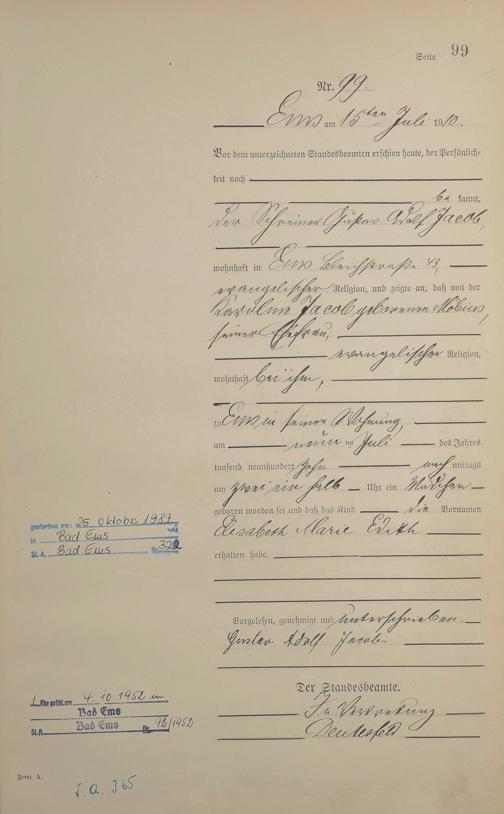 Seite 99
Nr. 99.
Ems am 15ten Juli 1910.
Vor dem unterzeichneten Standesbeamten erschien heute, der Persönlich-
keit nach
be kannt,
der Schreiner Gustav Adolf Jacob,
wohnhaft in Ems Bleichstraße 43,
evangelischer Religion, und zeigte an, daß von der
Karoline Jacob geborenen Möbius,
seiner Ehefrau,
evangelischer Religion,
wohnhaft bei ihm,
zu Ems in seiner Wohnung,
am neunten Juli des Jahres
tausend neunhundert zehn nach mittags
um zwei ein halb Uhr ein Mädchen
geboren worden sei und daß das Kind die Vornamen
Elisabeth Marie Edith
erhalten habe.
Vorgelesen, genehmigt und unterschrieben.
Gustav Adolf Jacob
Der Standesbeamte.
In Vertretung
gestorben am: 25. Oktober 1987
in Bad Ems
St. A. Bad Ems Nr. 322
1. Ehe geschl. am 4.10.1952 in
Bad Ems
St. A. Bad Ems Nr. 72/1952
Form. A.
J. A. 365